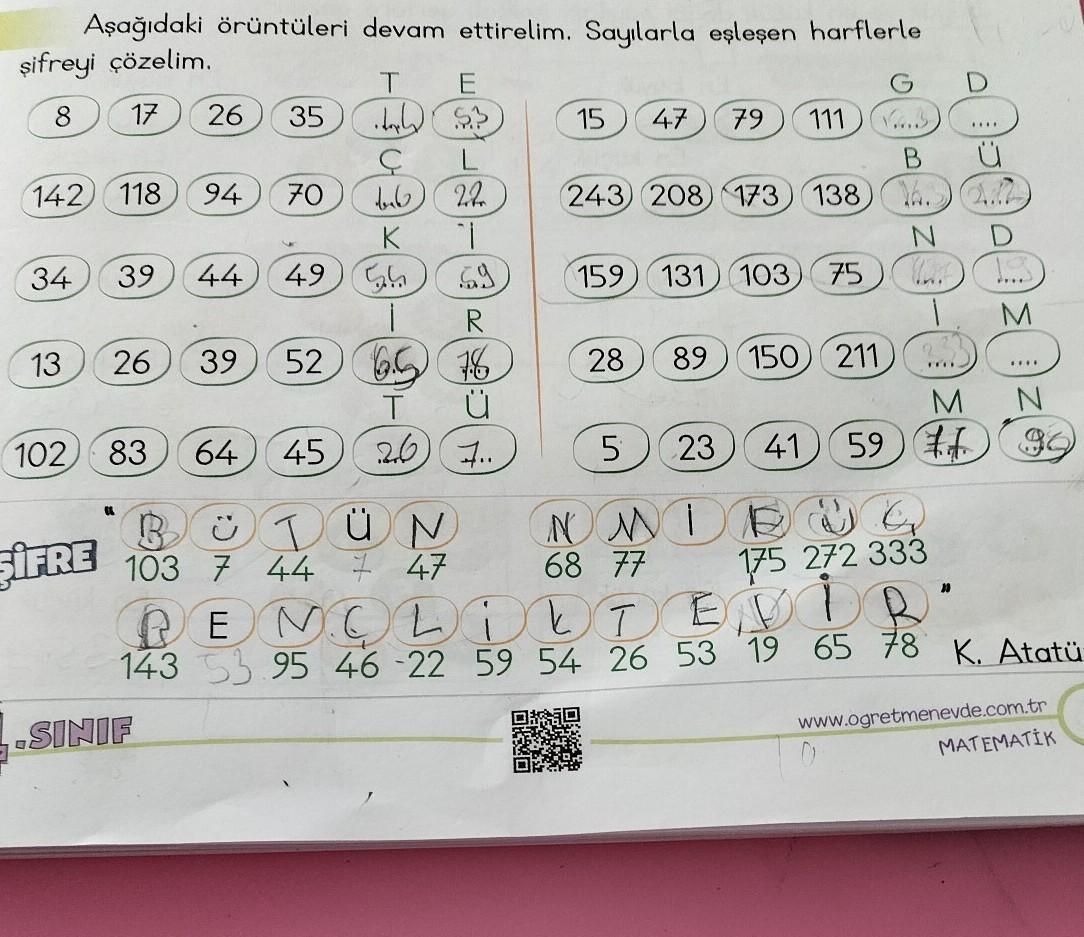 Aşağıdaki örüntüleri devam ettirelim. Sayılarla eşleşen harflerle
şifreyi çözelim.
T E G D
8 17 26 35 44 53 15 47 79 111 ....
Ç L B Ü
142 118 94 70 46 22 243 208 173 138
K İ N D
34 39 44 49 54 59 159 131 103 75 19
İ R İ M
13 26 39 52 65 78 28 89 150 211 ....
T Ü M N
102 83 64 45 26 7.. 5 23 41 59 77 95
" B Ü T Ü N N M İ Ü
ŞİFRE 103 7 44 7 47 68 77 175 272 333
E N Ç L İ K T E İ R "
143 53 95 46 -22 59 54 26 53 19 65 78 K. Atatü
.SINIF
www.ogretmenevde.com.tr
MATEMATİK